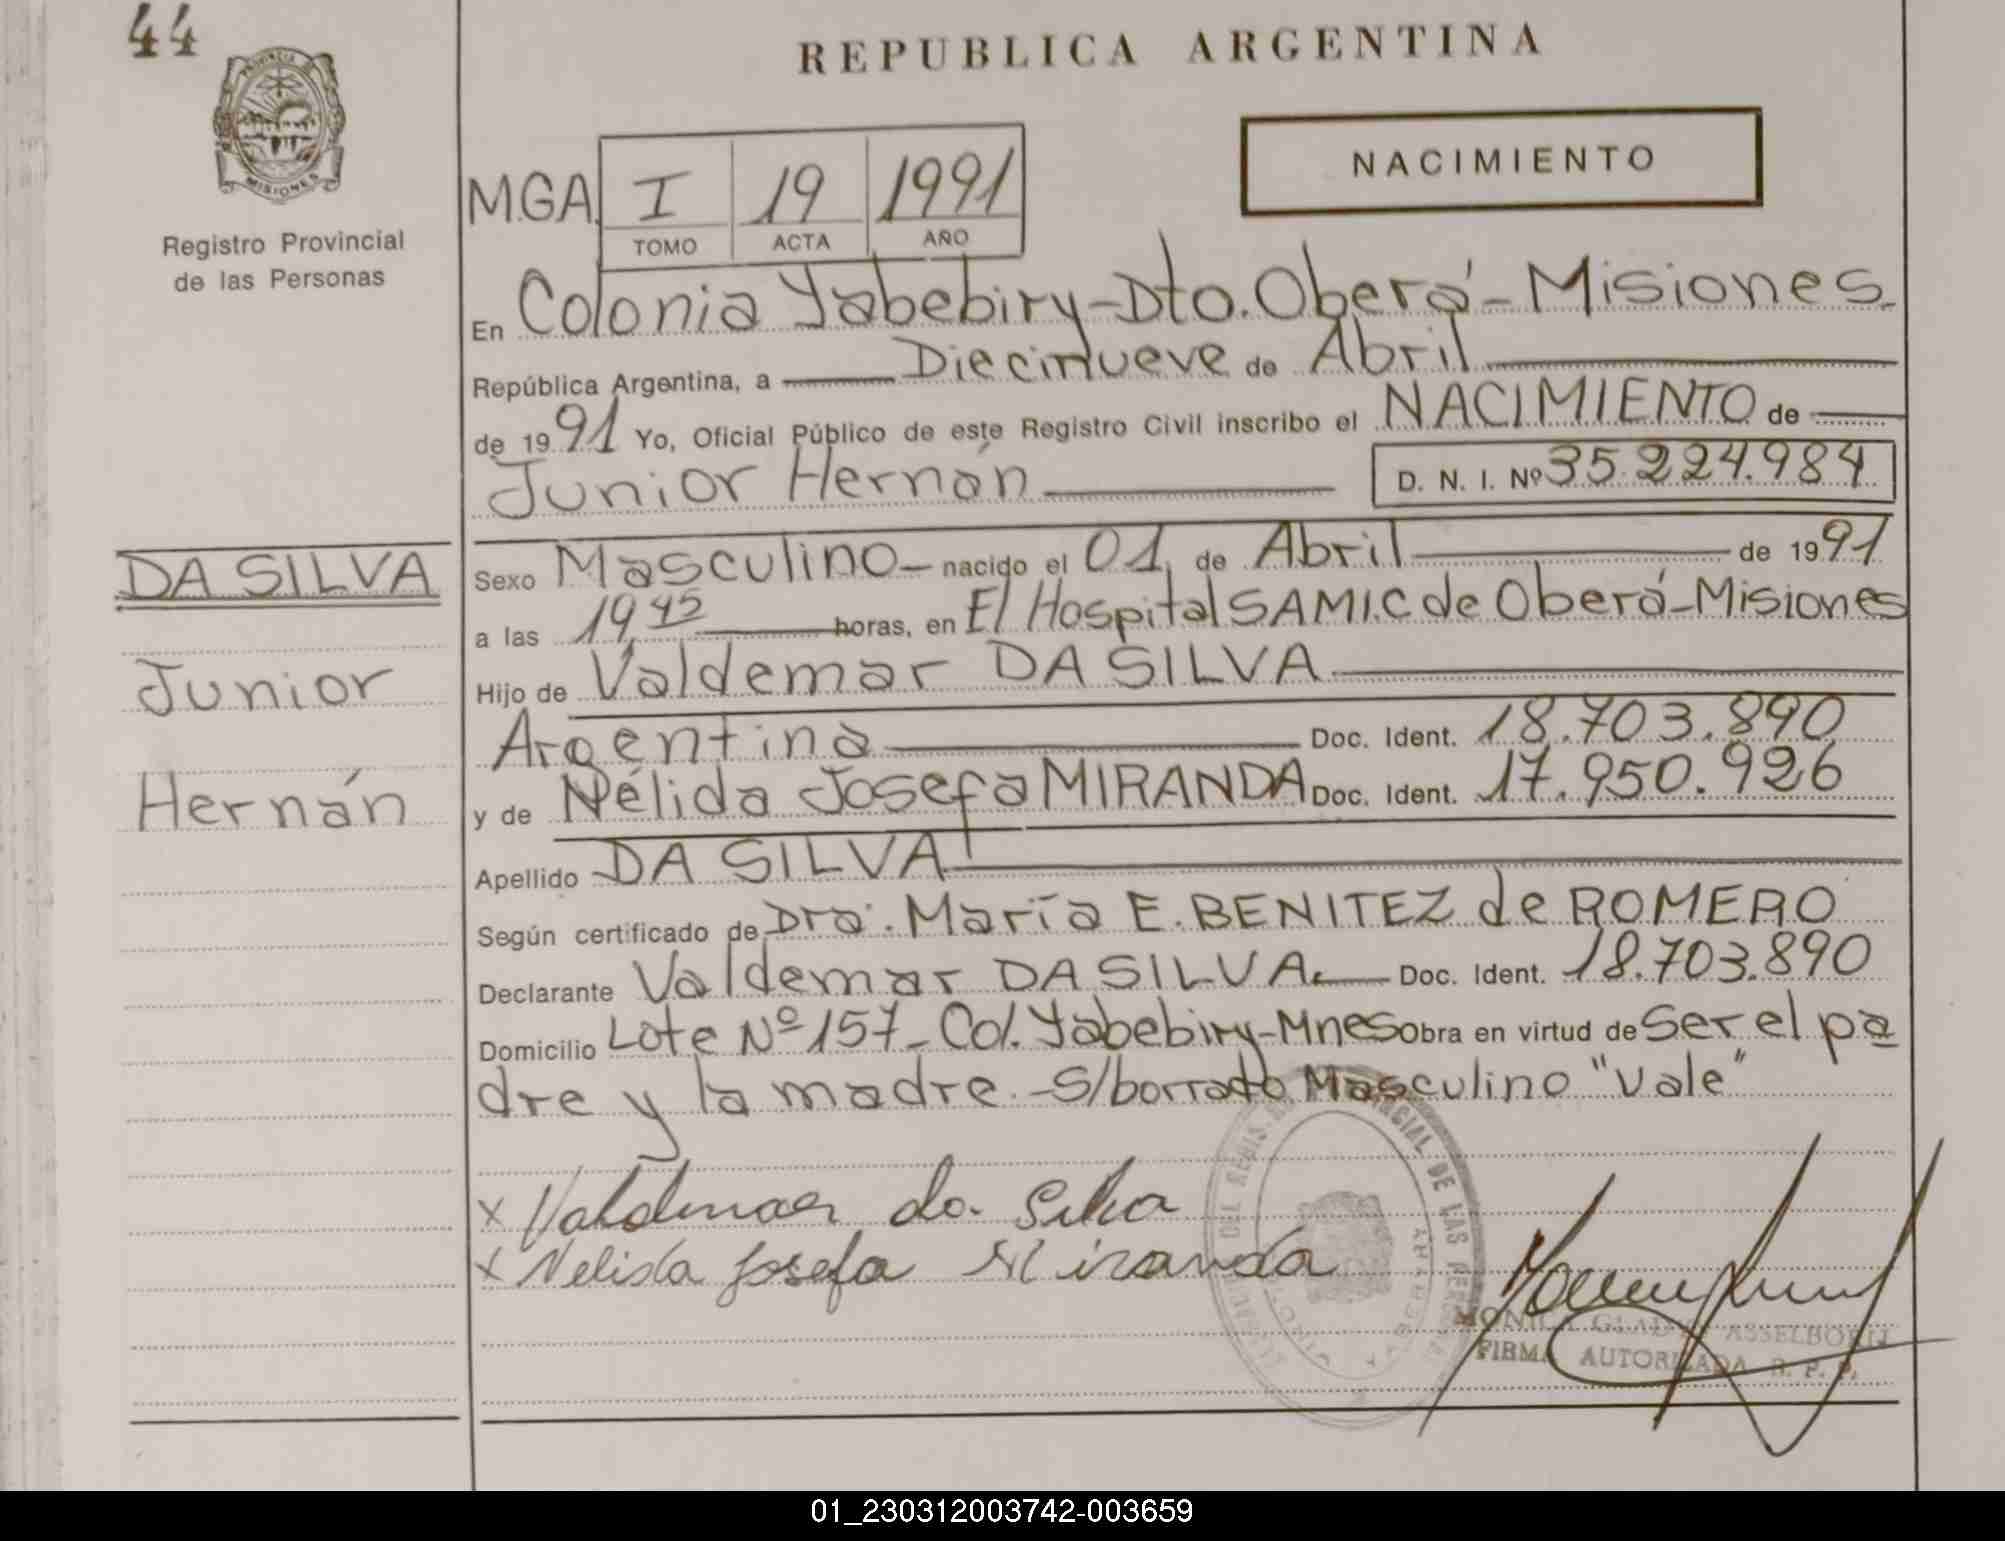 44
REPUBLICA ARGENTINA
PROVINCIA DE
MISIONES
Registro Provincial
de las Personas
NACIMIENTO
M.GA. I 19 1991
TOMO ACTA AÑO
En Colonia Yabebiry-Dto. Oberá-Misiones.
República Argentina, a Diecinueve de Abril
de 1991 Yo, Oficial Público de este Registro Civil inscribo el NACIMIENTO de
Junior Hernán D. N. I. Nº 35.224.984
DA SILVA
Junior
Hernán
Sexo Masculino nacido el 01 de Abril de 1991
a las 19,45 horas, en El Hospital SAMI.C de Oberá-Misiones
Hijo de Valdemar DA SILVA
Argentina Doc. Ident. 18.703.890
y de Nélida Josefa MIRANDA Doc. Ident. 17.950.926
Apellido DA SILVA
Según certificado de Dra. María E. BENITEZ de ROMERO
Declarante Valdemar DA SILVA. Doc. Ident. 18.703.890
Domicilio Lote Nº 157-Col. Yabebiry-Mnes Obra en virtud de Ser el pa
dre y la madre.-S/borrado Masculino "Vale"
x Valdemar da Silva
x Nelida Josefa Miranda
MONICA GLADYS ASSELBORN
FIRMA AUTORIZADA R. P. P.
01_230312003742-003659